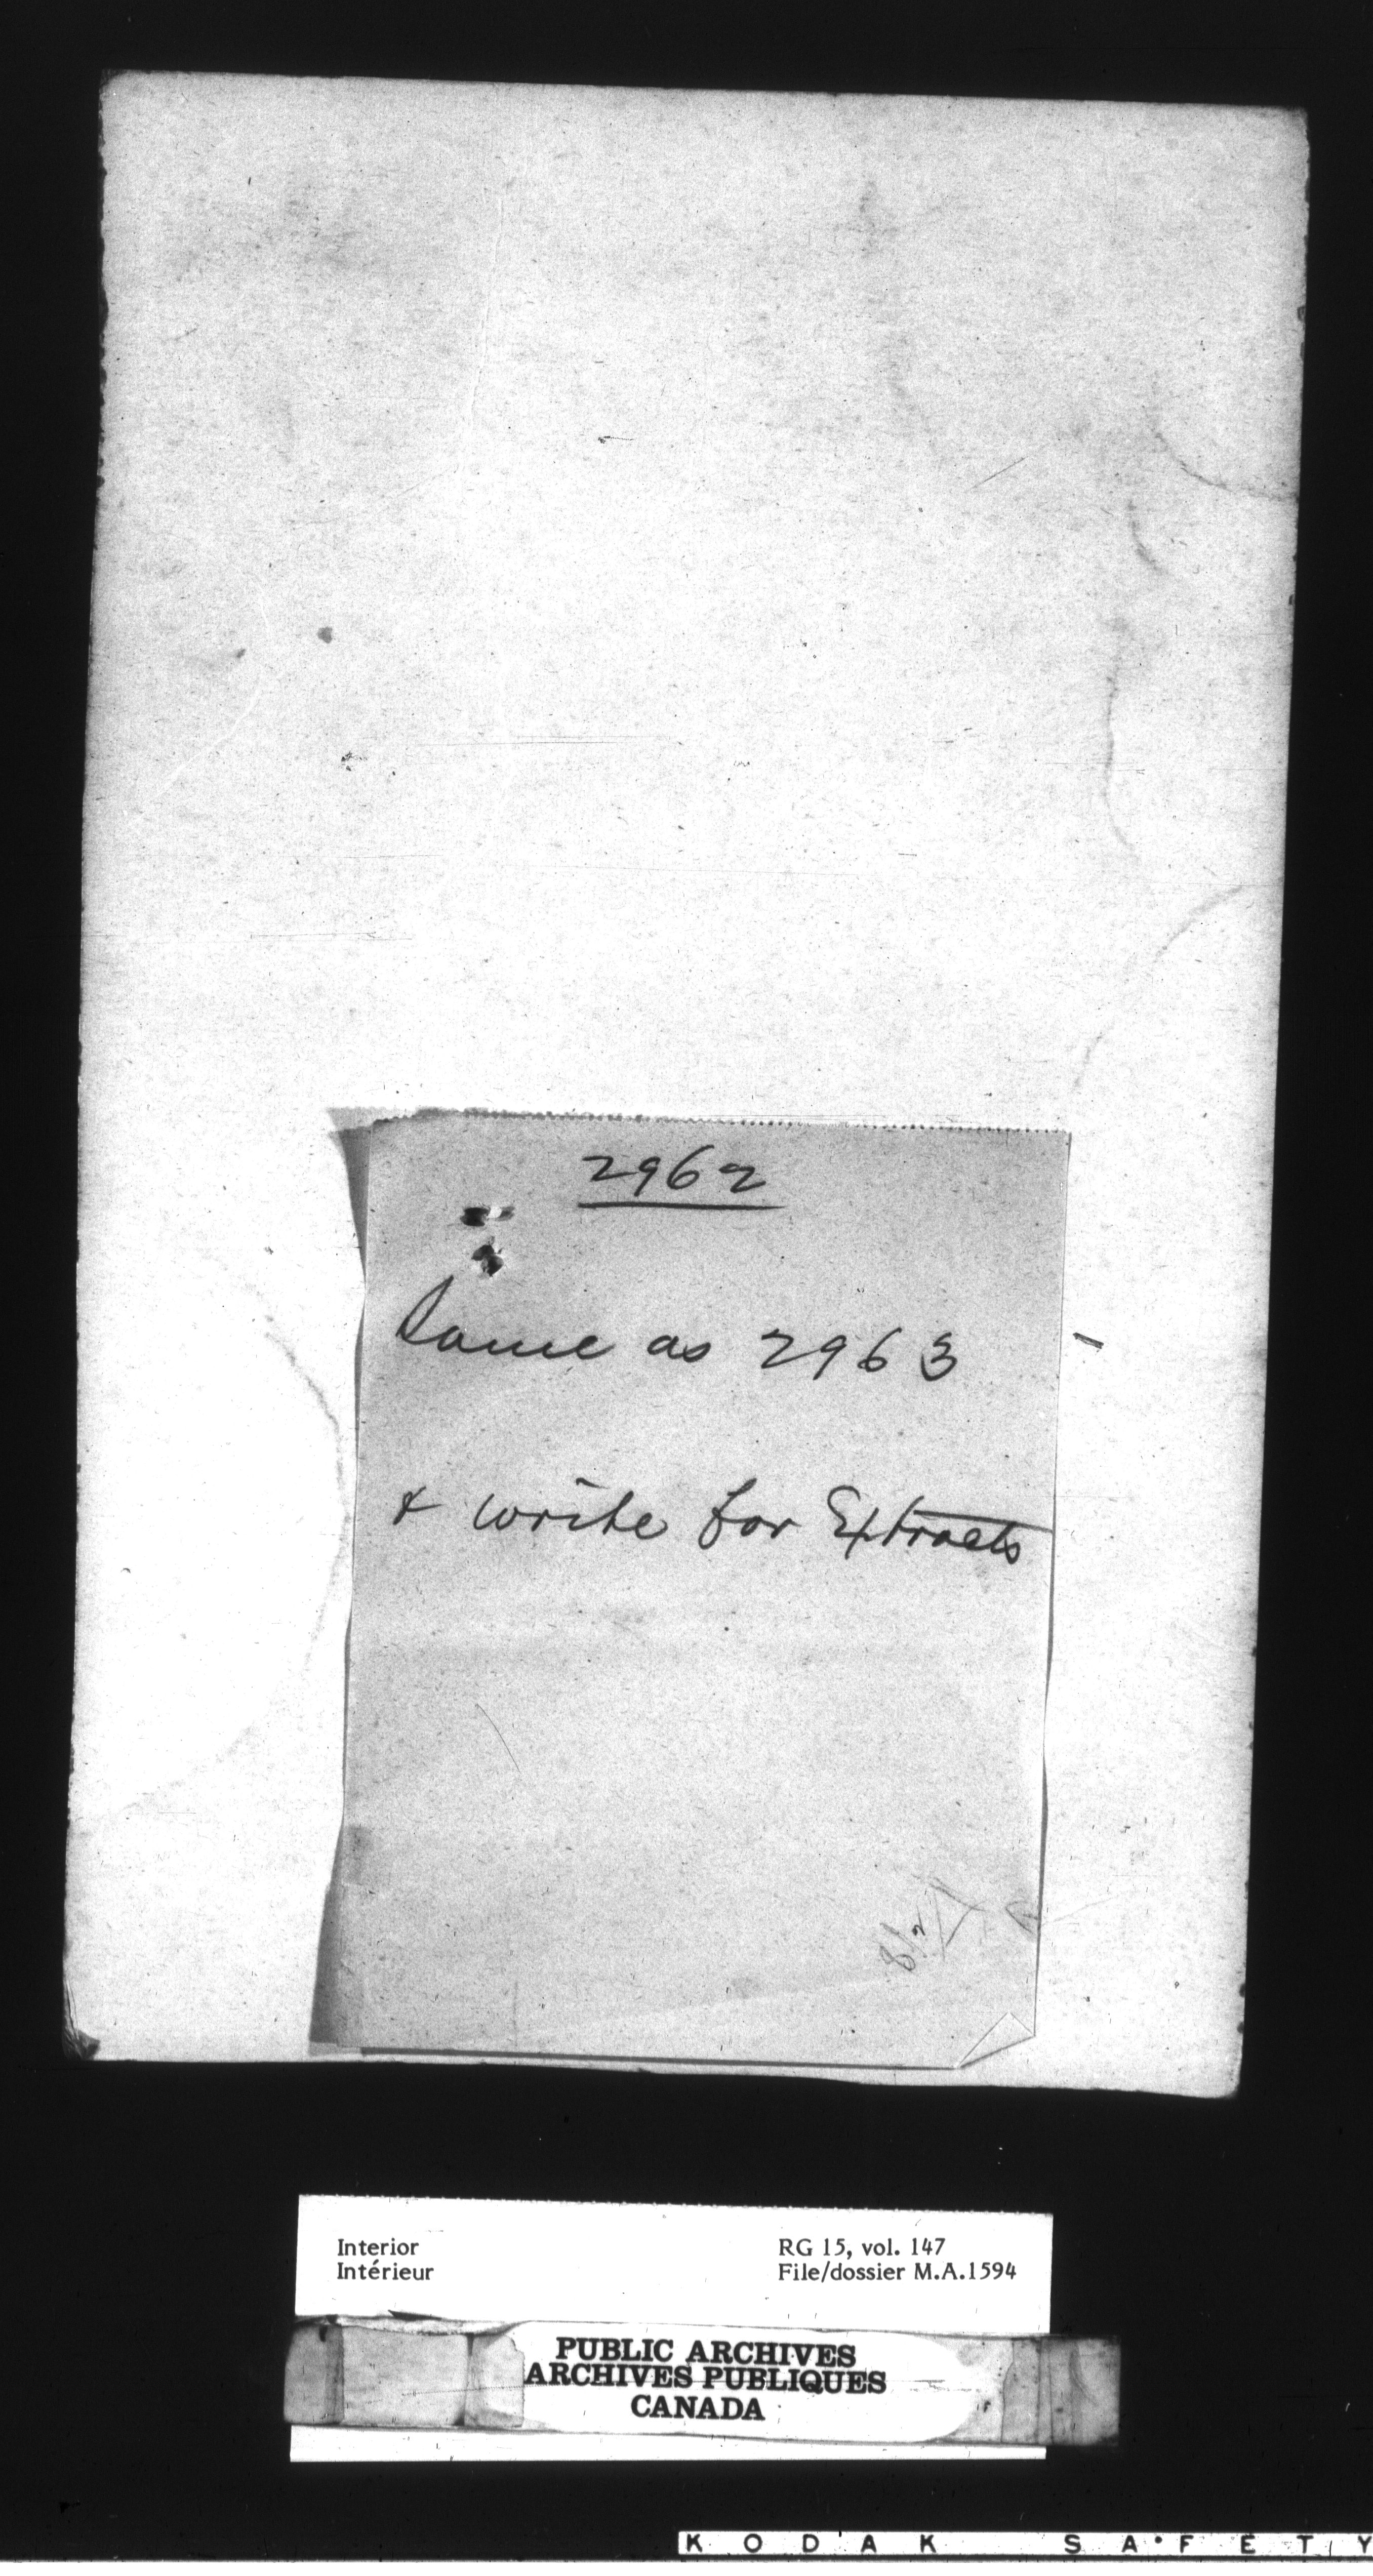 2962
Same as 2963
& write for Extracts
Interior
Intérieur
RG 15, vol. 147
File/dossier M.A.1594
PUBLIC ARCHIVES
ARCHIVES PUBLIQUES
CANADA
KODAK SAFETY